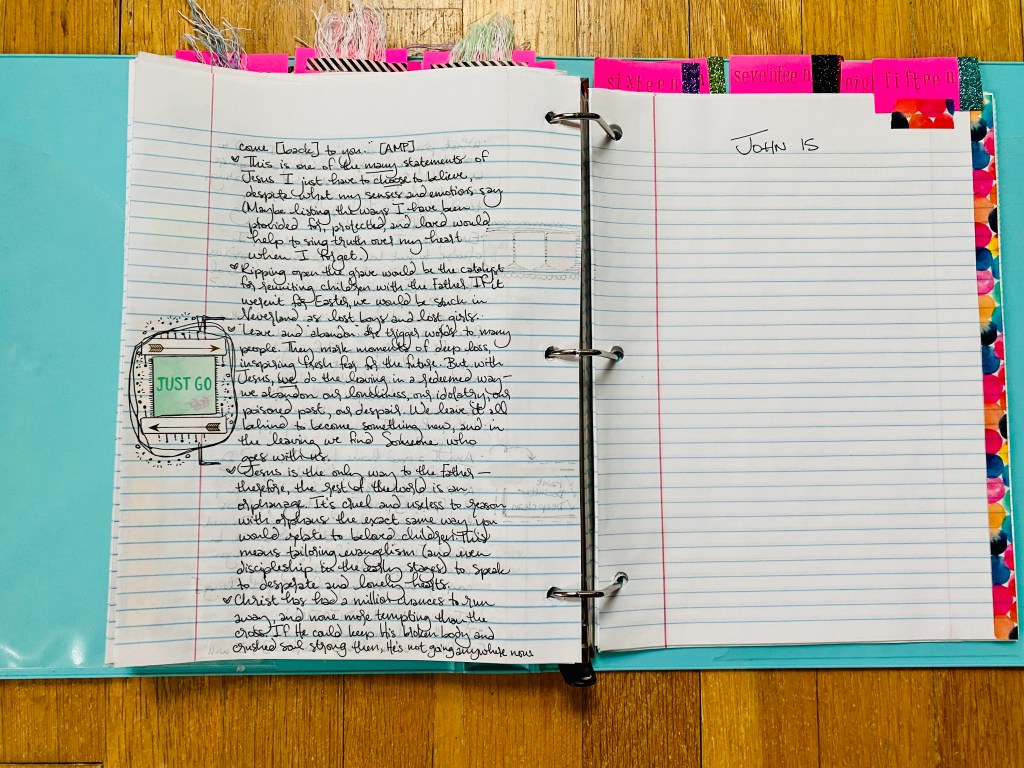 come [back] to you." [AMP]
This is one of the many statements of
Jesus I just have to choose to believe,
despite what my senses and emotions say
(Maybe listing the ways I have been
provided for, protected, and loved would
help to sing truth over my heart
when I forget.)
Ripping open the grave would be the catalyst
for reuniting children with the Father. If it
weren't for Easter, we would be stuck in
Neverland as lost boys and lost girls.
"Leave and abandon" are trigger words to many
people. They mark moments of deep loss,
inspiring fresh fear for the future. But with
Jesus, we do the leaving in a redeemed way—
we abandon our loneliness, our idolatry, our
poisoned past, our despair. We leave it all
behind to become something new, and in
the leaving we find Someone who
goes with us.
Jesus is the only way to the Father—
therefore, the rest of the world is an
orphanage. It's cruel and useless to reason
with orphans the exact same way you
would relate to beloved children. This
means tailoring evangelism (and even
discipleship in the early stages) to speak
to desperate and lonely hearts.
Christ has had a million chances to run
away, and none more tempting than the
cross. If He could keep His broken body and
crushed soul strong then, He's not going anywhere now
JUST GO
sixteen
seventeen
eigh
fifteen
JOHN 15